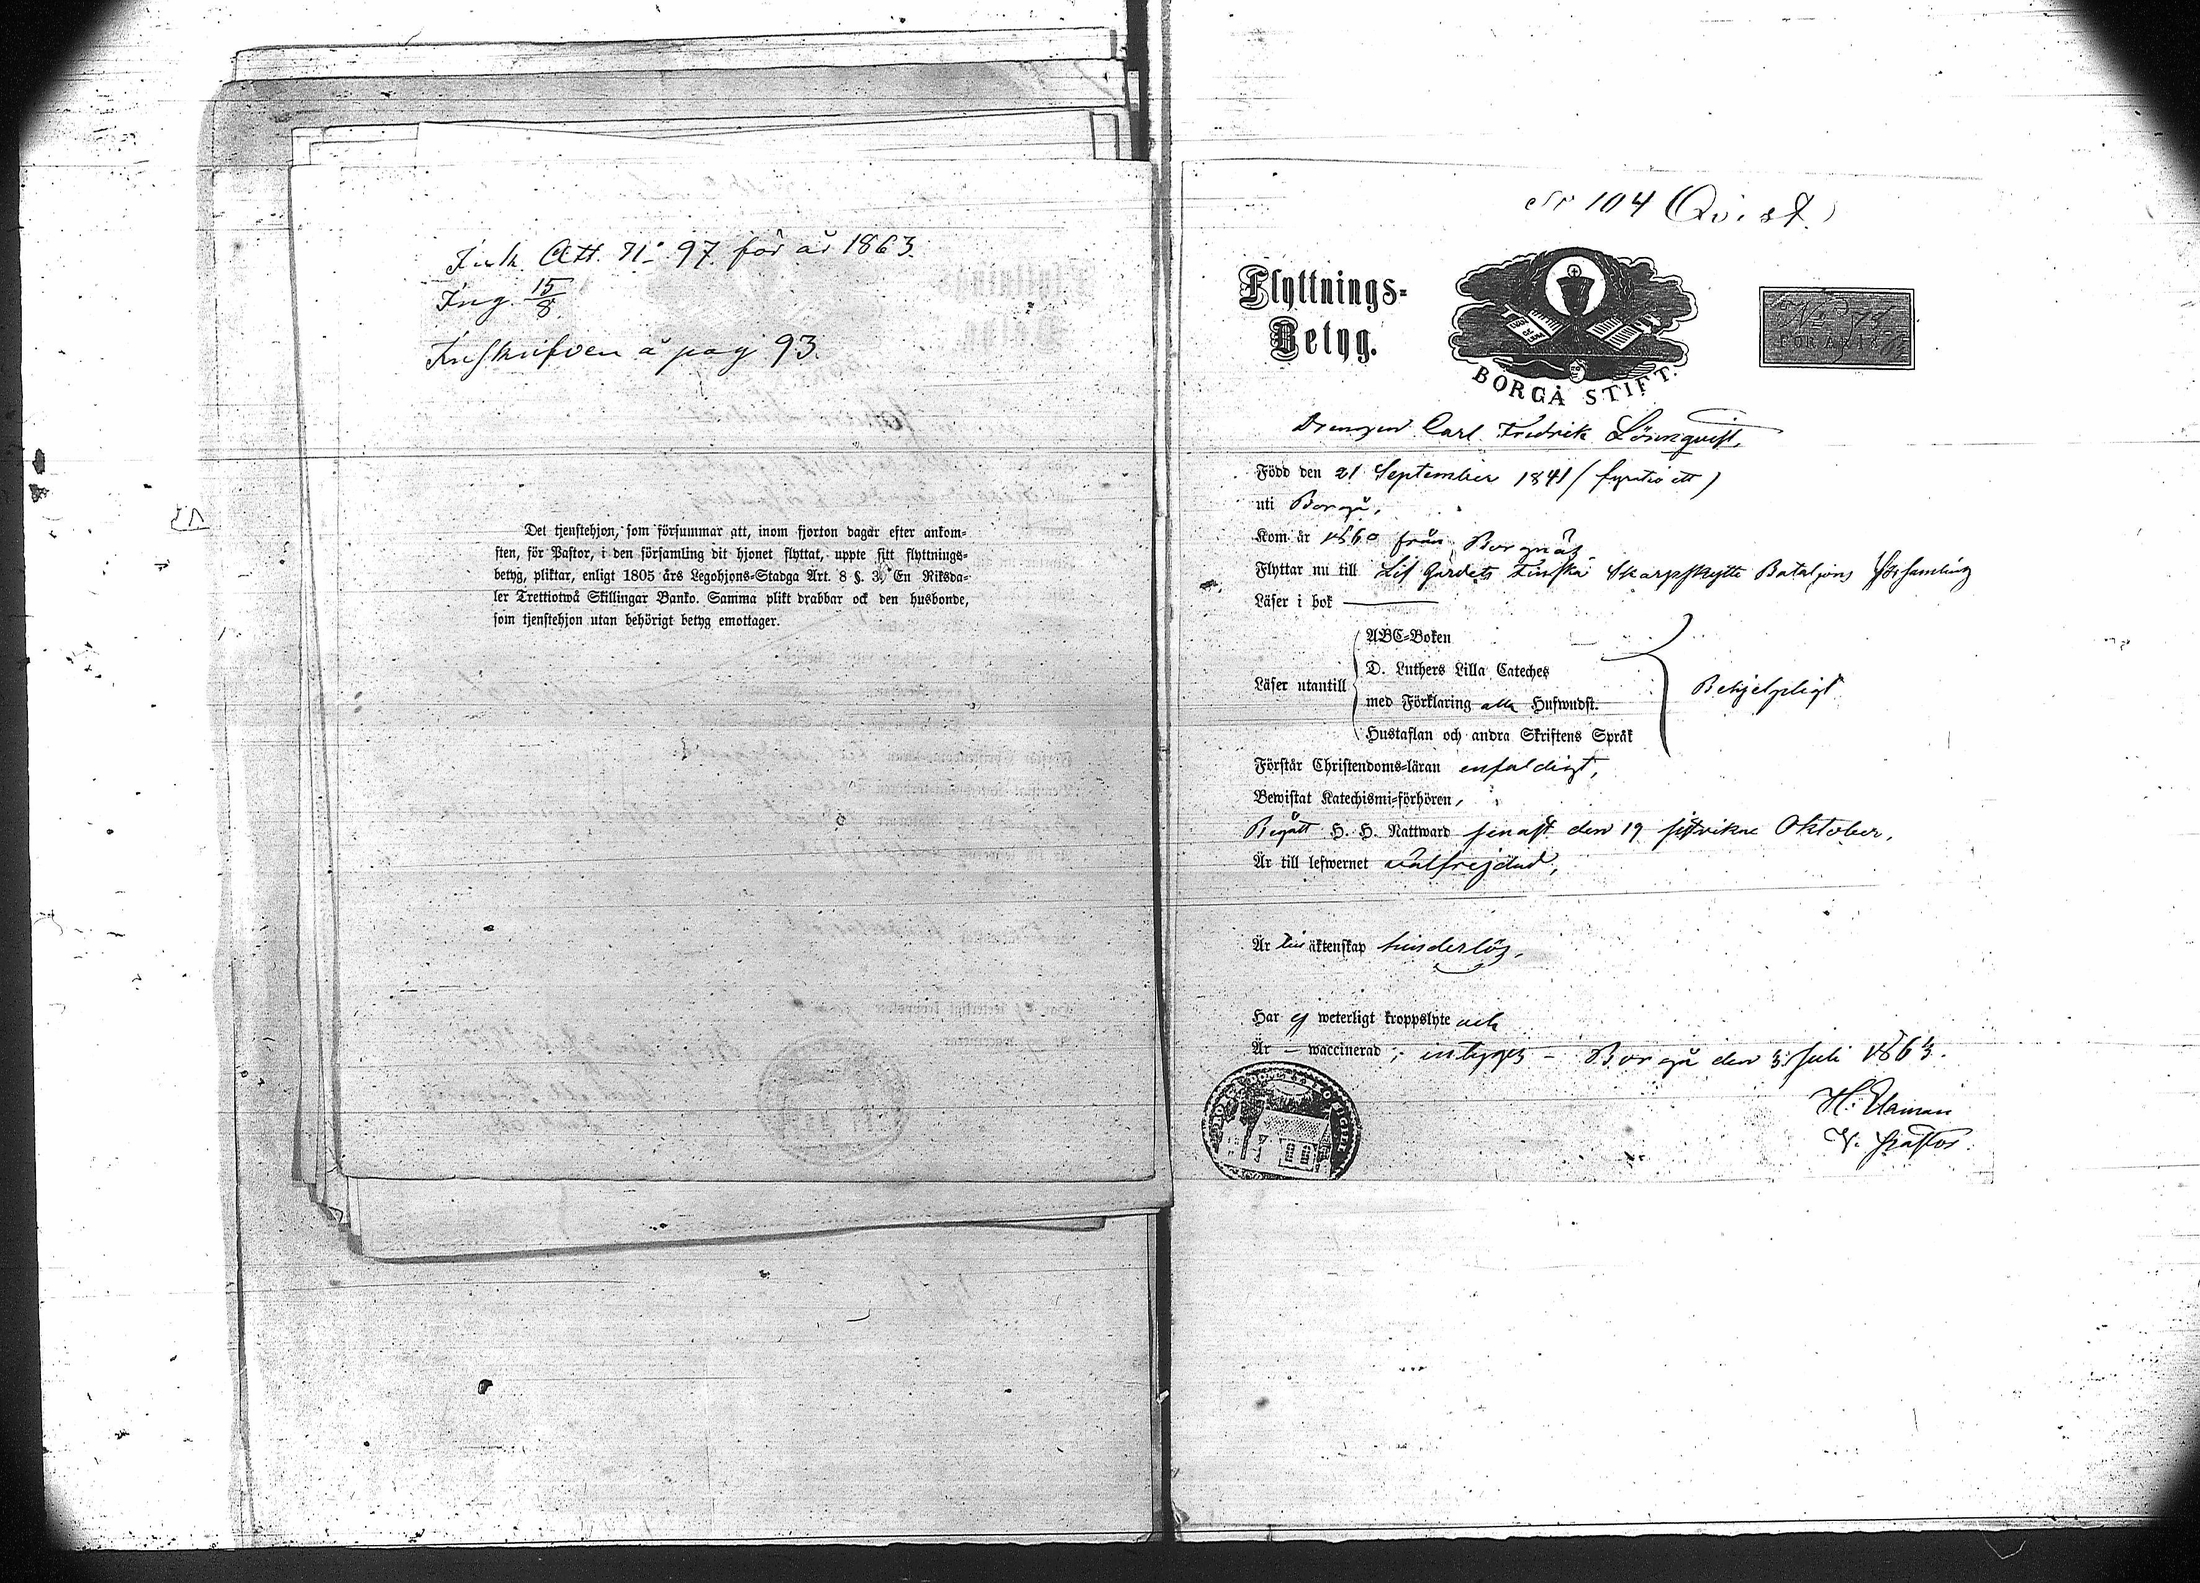 Ink. Att. N: 97 för år 1863.
Ing. 15/8
Inskrifven å pag 93.
Det tjenstehjon, som försummar att, inom fjorton dagar efter ankom-
sten, för Pastor, i den församling dit hjonet flyttat, uppte sitt flyttnings-
betyg, pliktar, enligt 1805 års Legohjons-Stadga Art. 8 §. 3, En Riksda-
ler Trettiotwå Skillingar Banko. Samma plikt drabbar ock den husbonde,
som tjenstehjon utan behörigt betyg emottager.
Nr 104 (Qvist)
Flyttnings-
Betyg.
BORGÅ STIFT.
FÖR ÅR 18
Drengen Carl Fredrik Lönnqvist,
Född den 21 September 1841 (fyratio ett)
uti Borgå,
Kom år 1860 från Borgnäs
Flyttar nu till Lif Gardets Finska Skarpskytte Bataljons Församling
Läser i bok
Läser utantill
ABC-Boken
D. Luthers Lilla Cateches
med Förklaring alla Hufwudst.
Hustaflan och andra Skriftens Språk
Behjelpligt
Förstår Christendoms-läran enfaldigt,
Bewistat Katechismi-förhören,
Begått H. H. Nattward senast den 19 sistvikne Oktober,
Är till lefwernet välfrejdad,
Är till äktenskap hinderlös,
Har ej weterligt kroppslyte och
Är – waccinerad; intygas – Borgå den 3 Juli 1863.
V. Pastor.